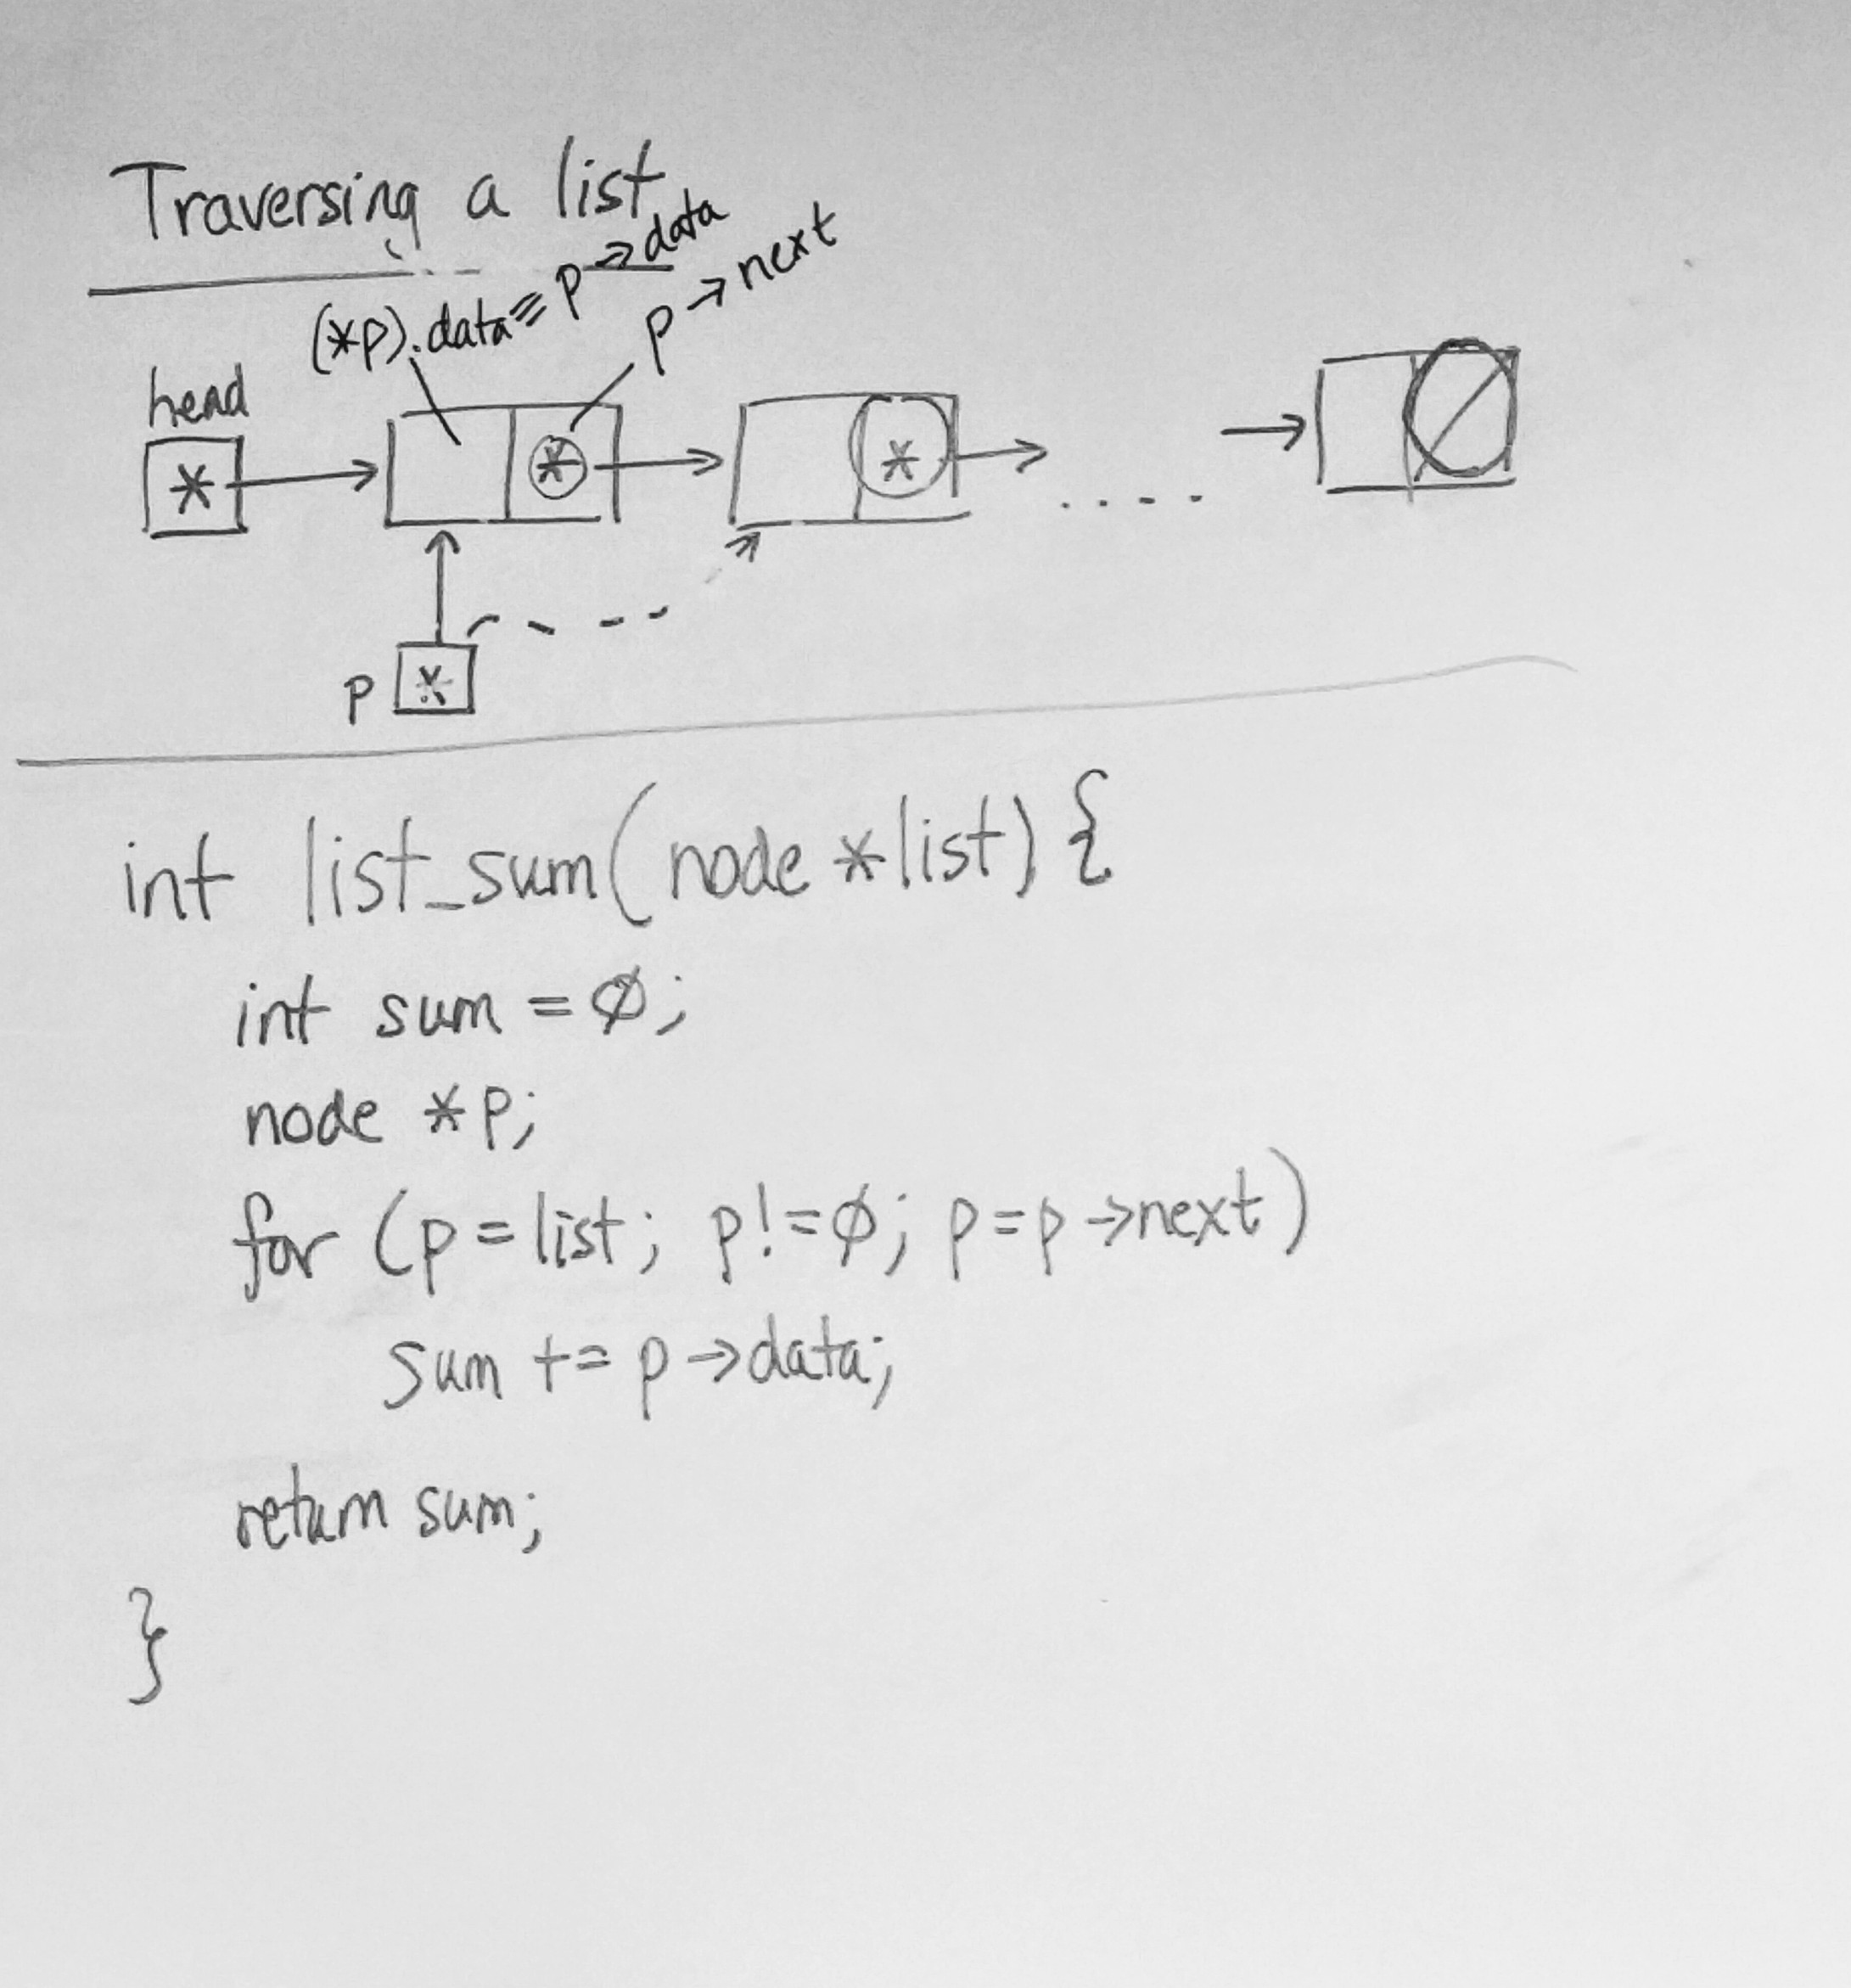 Traversing a list
(*p).data ≡ p→data
p→next
head
*
*
*
p *
int list_sum(node *list) {
int sum = ∅;
node *p;
for (p = list; p != ∅; p = p→next)
sum += p→data;
return sum;
}